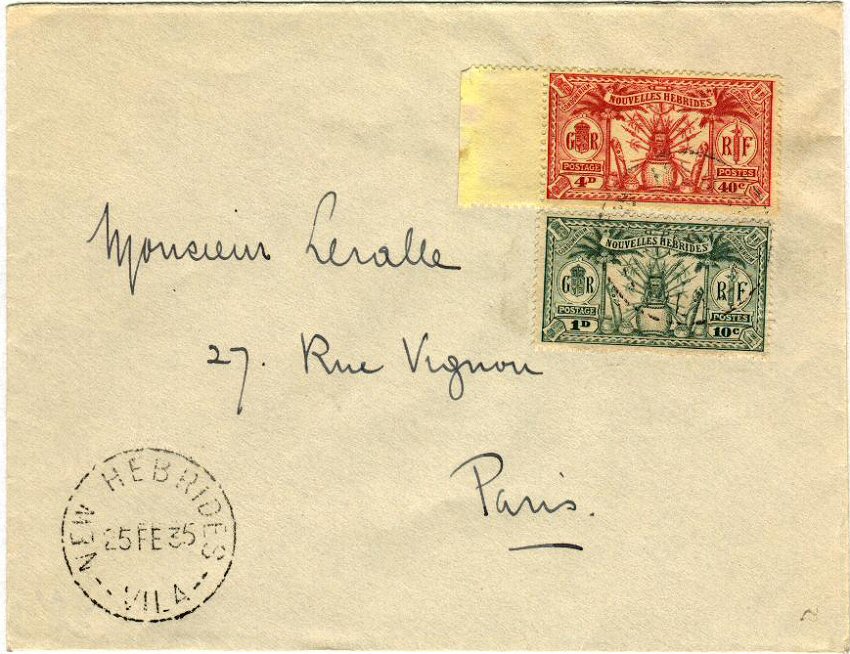 NOUVELLES HEBRIDES
G R
R F
POSTAGE
POSTES
4D
40c
NOUVELLES HEBRIDES
G R
R F
POSTAGE
POSTES
1D
10c
Monsieur Leralle
27. Rue Vignon
Paris.
NEW HEBRIDES
25 FE 35
VILA